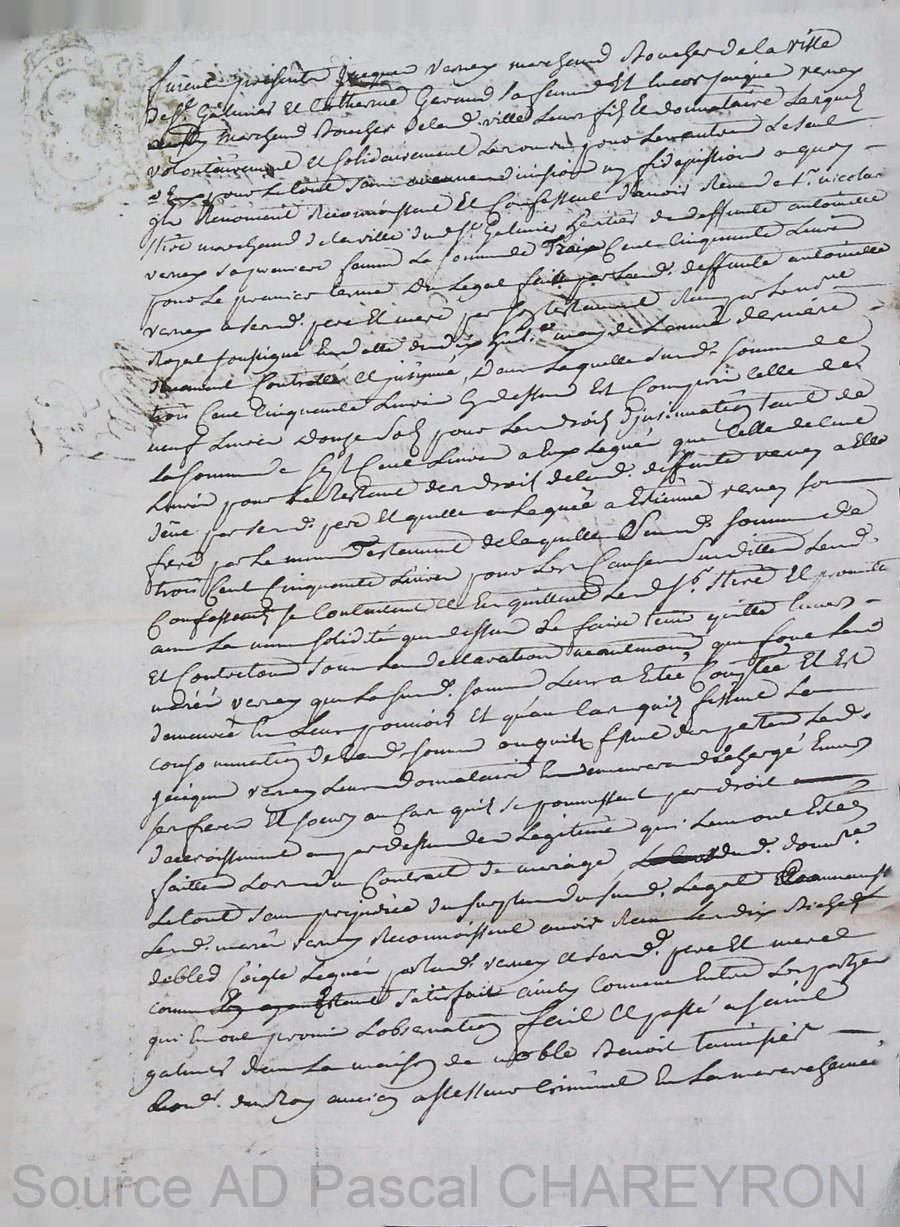 furent présents Jacques verney marchand Boucher de la ville
de st. Galmier Et Catherine Geraud sa femme Et encor Jacques verney
marchand Boucher de lad. ville Leur fils Et donnataire Lesquels
volontairement Et solidairement Les uns pour Les autres Le seul
pour Le tout sans aucune division ny fidejussion a quoy
Renoncent Reconnoissent Et Confessent d'avoir Receu de sr. nicolas
marchand de la ville dud. st. Galmier heritier de deffunte antoinette
verney sa premiere femme La somme de Trois Cent Cinquante Livres
pour Le premier terme du Legat fait par Lad. deffunte antoinette
verney a sesd. pere Et mere par son testament Receu par Le nre
Royal soussigné En datte du dix huit may de L'année derniere
duement Controllé Et insinué, dans Laquelle susd. somme de
trois Cent Cinquante Livres Cy dessus Est Compris Celle de
neuf Livres douze sols pour Les droits d'insinuation tant de
La somme de sept Cent Livres a Eux Leguée que Celle de Cent
Livres pour Le Restant des droits de lad. deffunte verney a Elle
deüe par sesd. pere Et qu'elle a Leguée a Estienne verney son
frere par Le meme Testament de laquelle susd. somme de
trois Cent Cinquante Livres pour Les Causes susdittes Lesd.
Confessants se Contentent Et En quittent Led. sr. Et promettent
avec La meme solidité que dessus de faire tenir quitte Envers
Et Contre tous sous La declaration neantmoins que font Lesd.
mariés verney que La susd. somme Leur a Eté Comptée Et Est
demeurée En Leur pouvoir Et qu'au Cas qu'ils fissent La
consommation de lad. somme ou qu'ils fissent des pertes Led.
Jacques verney Leur donnataire En demeurera dechargé Envers
ses freres Et soeurs au Cas qu'ils se pourvussent par droit
d'accroissement au par dessus des Legitimes qui Leur ont Etées
faittes Lors du Contract de mariage, dud. donnre.
Le tout sans prejudice du surplus du susd. Legat
Lesd. mariés verney Reconnoissent avoir Receu Les dix Bichets
de bled seigle Legués par lad. verney a sesd. pere Et mere
comme Estant satisfait ainsy Convenu Entre Les parties
qui En ont promis L'observation fait Et passé a saint
galmier dans La maison de noble Benoit
Conser. du Roy ancien assesseur Criminel En La marechaussée